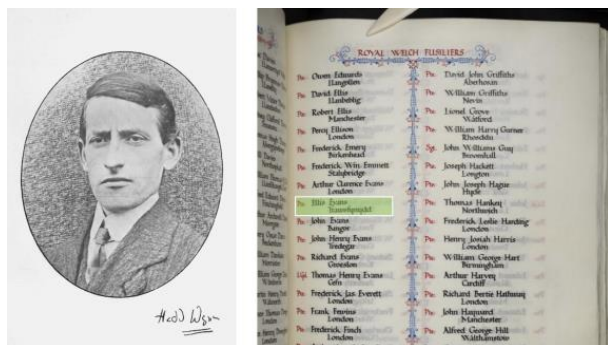 Hedd Wyn
ROYAL WELCH FUSILIERS
Pte. Owen Edwards
Llangollen
Pte. David Ellis
Llanbeblig
Pte. Robert Ellis
Manchester
Pte. Percy Ellison
London
Pte. Frederick Emery
Birkenhead
Pte. Frederick Win. Emmett
Stalybridge
Pte. Arthur Clarence Evans
London
Pte. Ellis Evans
Trawsfynydd
Pte. John Evans
Bangor
Pte. John Henry Evans
Tredegar
Pte. Richard Evans
Thomas Henry Evans
Cefn
Pte. Frederick Jas. Everett
London
Pte. Frank Fewins
London
Pte. Frederick Finch
London
Pte. David John Griffiths
Aberhosan
Pte. William Griffiths
Nevin
Pte. Lionel Grove
Watford
Pte. William Harry Garner
Rhondda
Sgt. John Williams Guy
Pte. Joseph Hackett
Longton
Pte. John Joseph Hague
Hyde
Pte. Thomas Hankey
Northwich
Pte. Frederick Leslie Harding
London
Pte. Henry Josiah Harris
London
Pte. William George Hart
Birmingham
Pte. Arthur Harvey
Cardiff
Pte. Richard Bertie Hathway
London
Pte. John Hayward
Manchester
Pte. Alfred George Hill
Walthamstow